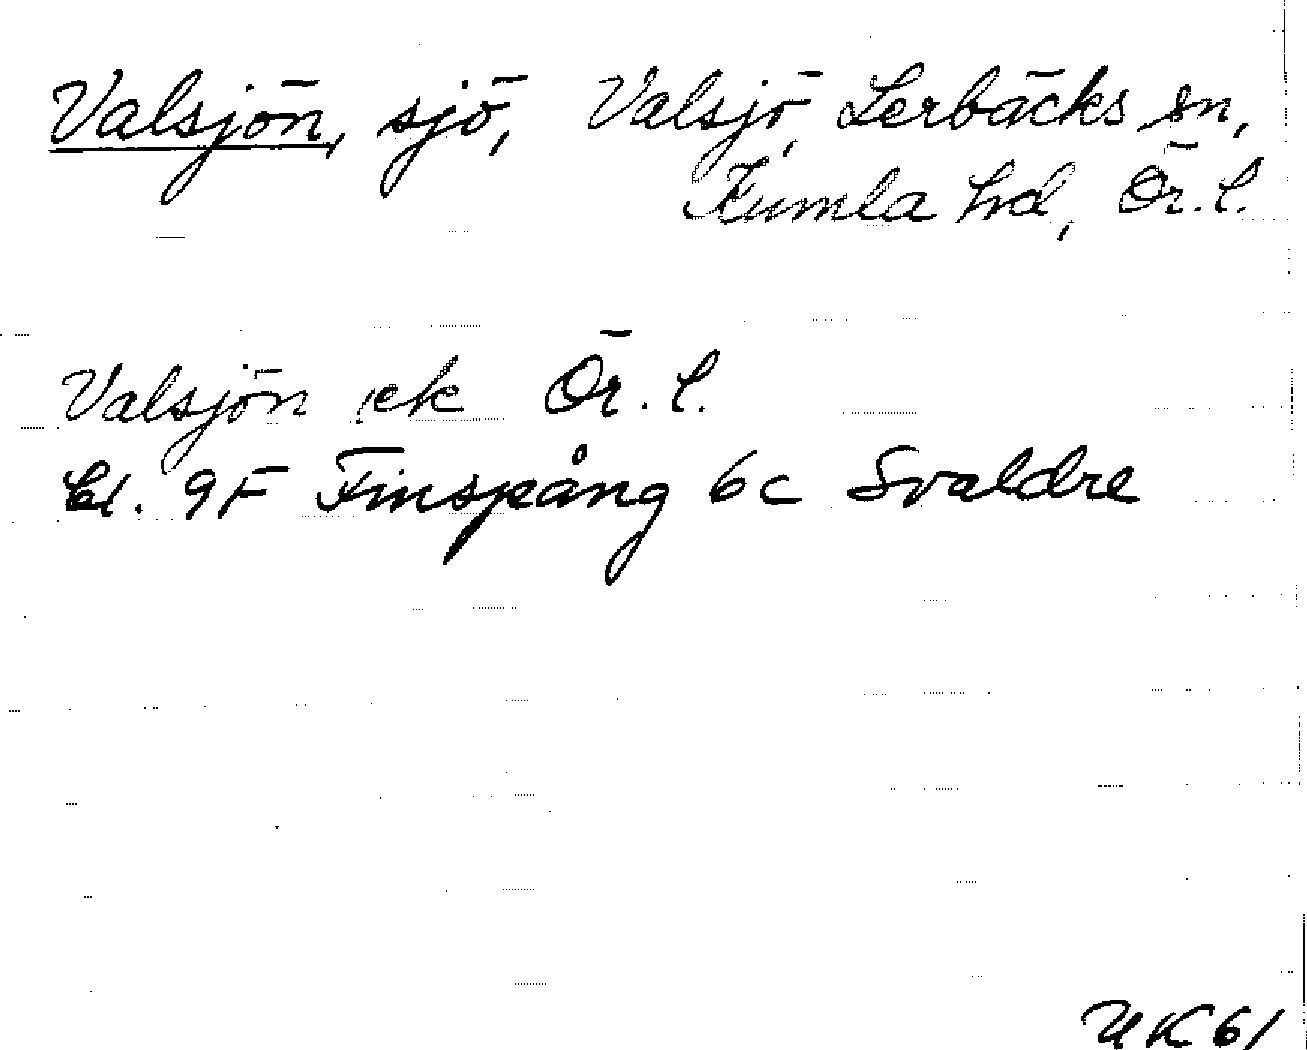 Valsjön, sjö, Valsjö, Lerbäcks sn,
Kumla hd, Ör. l.
Valsjön ek Ör. l.
bl. 9F Finspång 6c Svaldre
UK 61